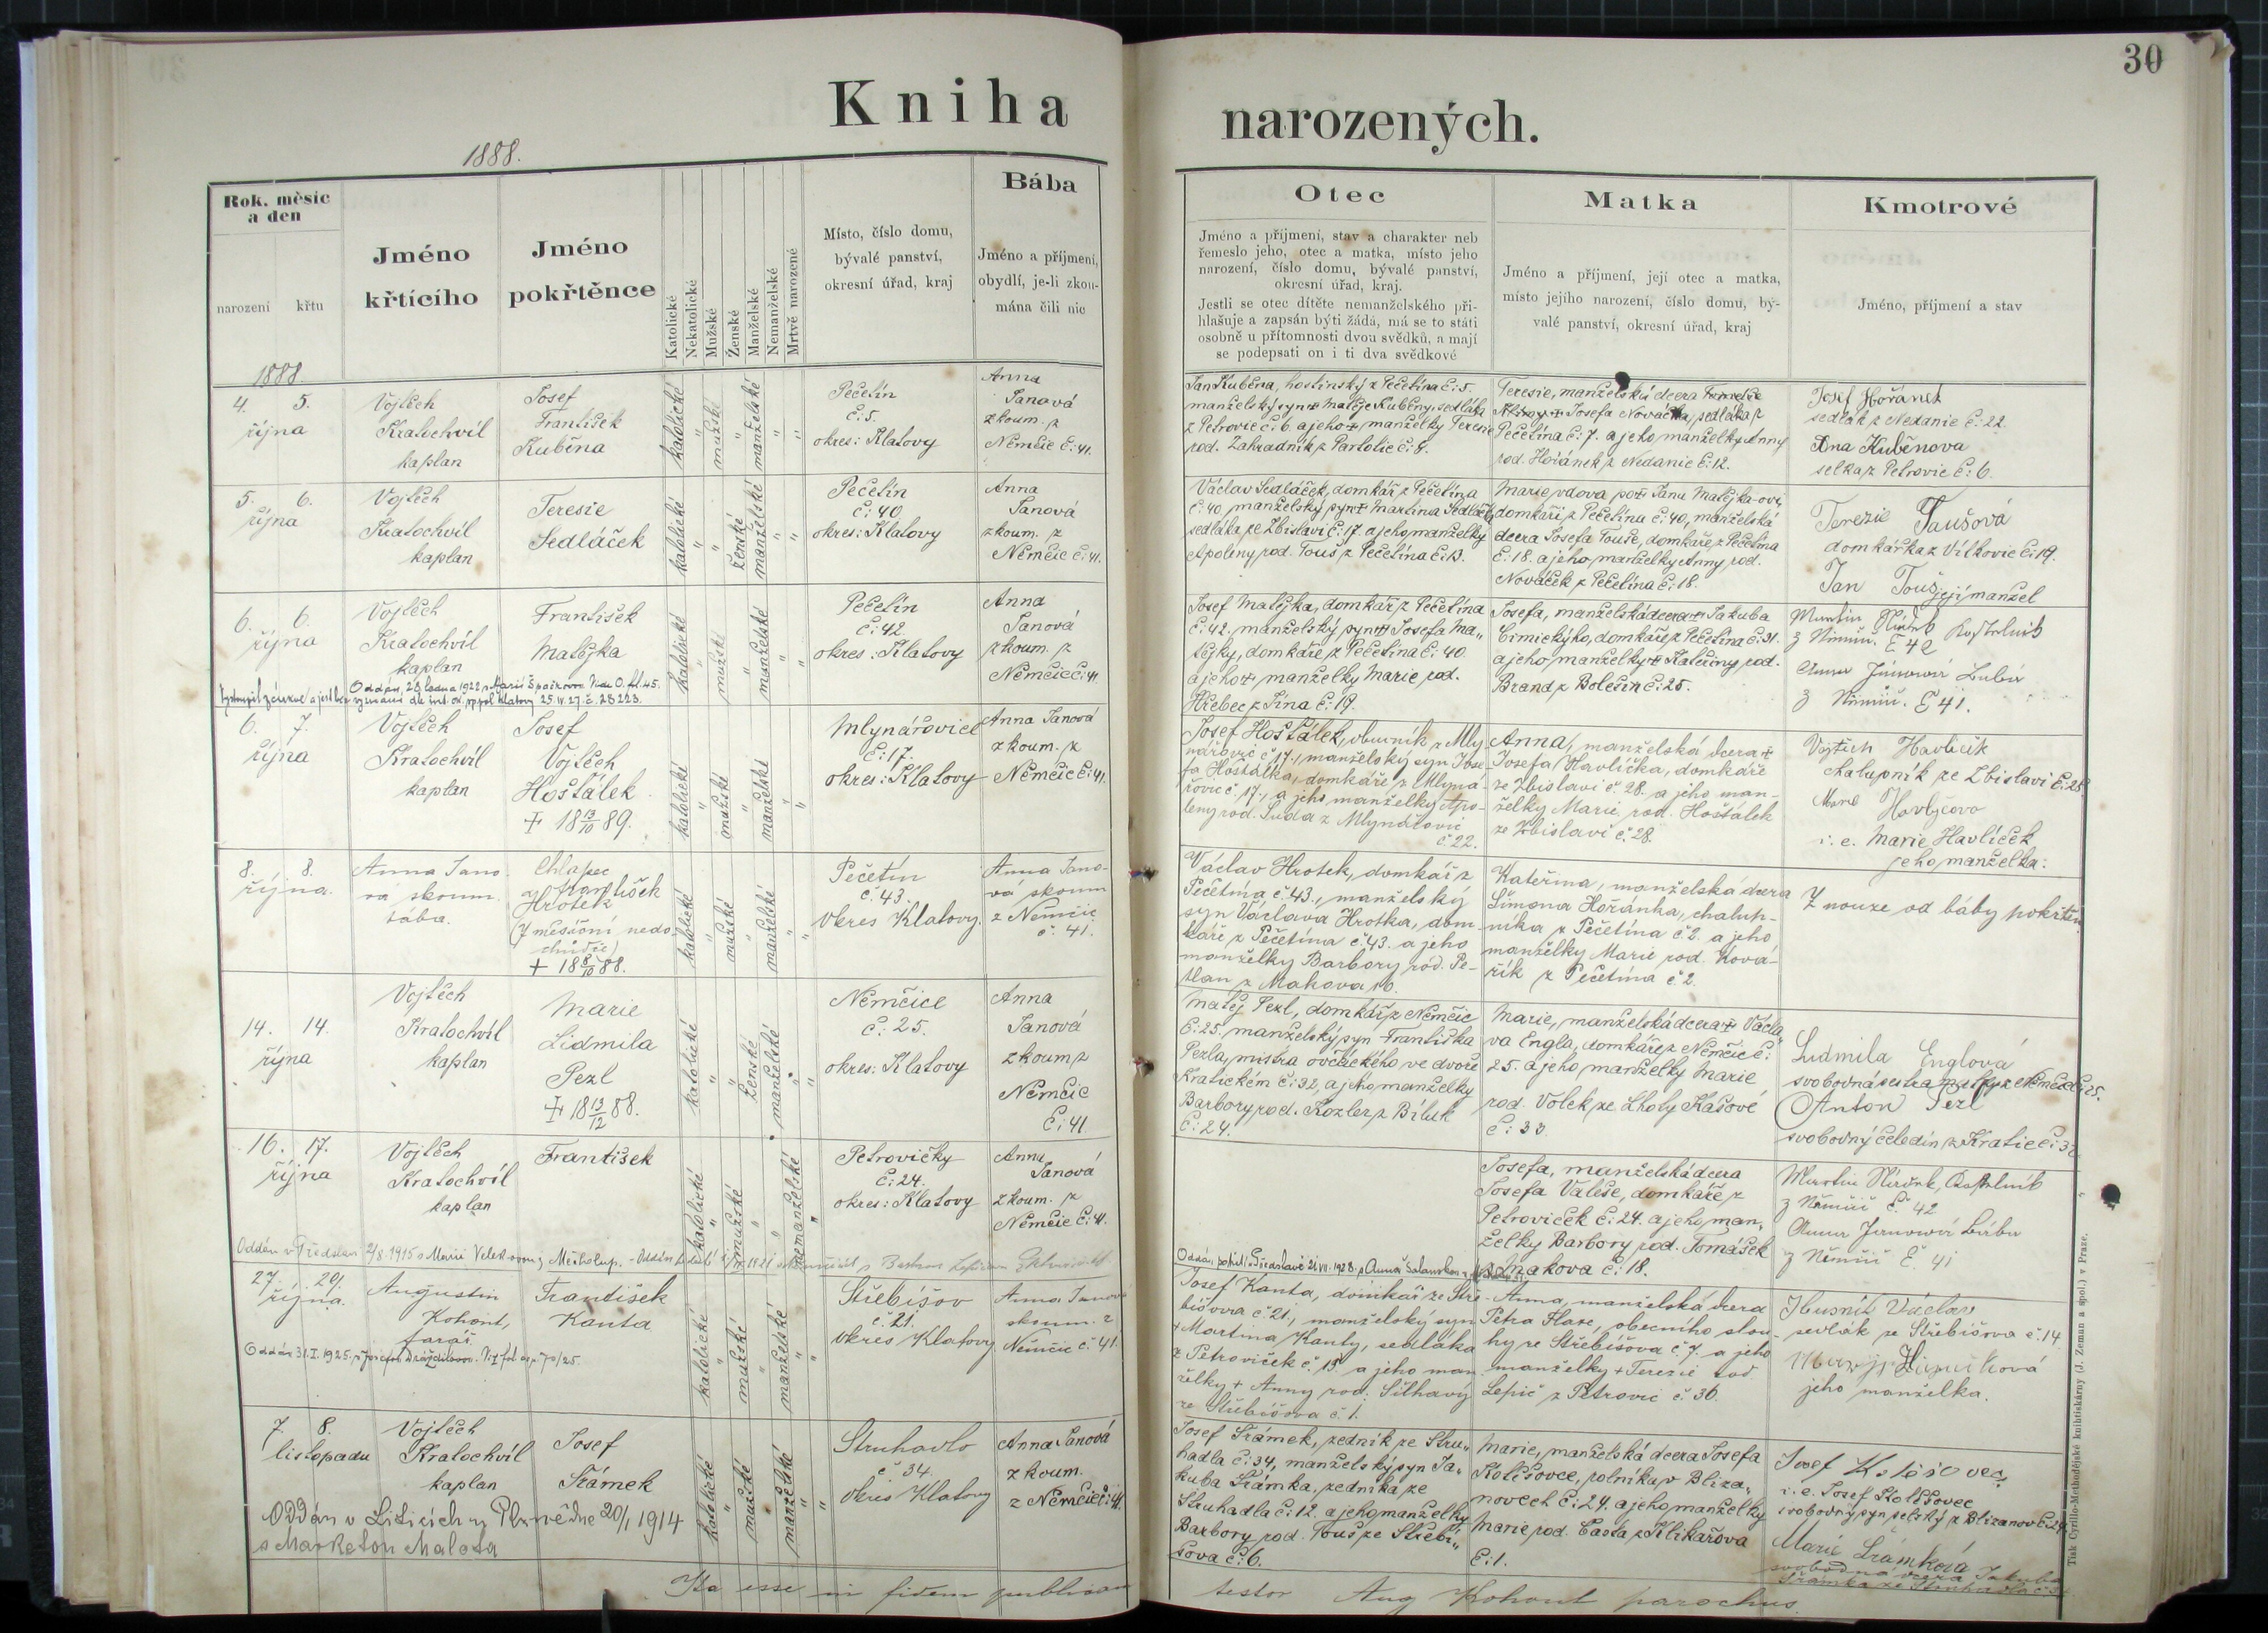 30
Kniha narozených.
1888.
Rok, měsíc
a den
narození křtu
Jméno
křtícího
Jméno
pokřtěnce
Katolické
Nekatolické
Mužské
Ženské
Manželské
Nemanželské
Mrtvě narozené
Místo, číslo domu,
bývalé panství,
okresní úřad, kraj
Bába
Jméno a příjmení,
obydlí, je-li zkou-
mána čili nic
Otec
Jméno a příjmení, stav a charakter neb
řemeslo jeho, otec a matka, místo jeho
narození, číslo domu, bývalé panství,
okresní úřad, kraj.
Jestli se otec dítěte nemanželského při-
hlašuje a zapsán býti žádá, má se to státi
osobně u přítomnosti dvou svědků, a mají
se podepsati on i ti dva svědkové
Matka
Jméno a příjmení, její otec a matka,
místo jejího narození, číslo domu, bý-
valé panství, okresní úřad, kraj
Kmotrové
Jméno, příjmení a stav
1888.
4. 5.
října
Vojtěch
Kratochvíl
kaplan
Josef
František
Kuběna
katolické
mužské
manželské
Pečetín
č: 5.
okres: Klatovy
Anna
Janová
zkoum. z
Němčic č: 41.
Jan Kuběna, hostinský z Pečetína č: 5.
manželský syn + Matěje Kuběny, sedláka
z Petrovic č: 6. a jeho + manželky Terezie
rod. Zahradník z Partolic č: 8.
Teresie, manželská dcera
Josefa Nováčka, sedláka z
Pečetína č: 7. a jeho manželky Anny
rod. Hořánek z Nedanic č: 12.
Josef Hořánek
sedlák z Nedanic č: 22.
Ana Kuběnova
selka z Petrovic č: 6.
5. 6.
října
Vojtěch
Kratochvíl
kaplan
Teresie
Sedláček
katolické
ženské
manželské
Pečetín
č: 40
okres: Klatovy
Anna
Janová
zkoum. z
Němčic č: 41.
Václav Sedláček, domkář z Pečetína
č: 40, manželský syn + Martina Sedláčka
sedláka ze Zbislavi č: 17. a jeho manželky
Apoleny rod. Touš z Pečetína č: 13.
Marie vdova po + Janu Matějka-ovi,
domkáři z Pečetína č: 40, manželská
dcera Josefa Touše, domkáře z Pečetína
č: 18. a jeho manželky Anny rod.
Nováček z Pečetína č: 18.
Terezie Taušová
domkářka z Vítkovic č: 19.
Jan Touš
její manžel
6. 6.
října
Vojtěch
Kratochvíl
kaplan
František
Matějka
katolické
mužské
manželské
Pečetín
č: 42
okres: Klatovy
Anna
Janová
zkoum. z
Němčic č: 41
Josef Matějka, domkář z Pečetína
č: 42. manželský syn + Josefa Ma„
tějky, domkáře z Pečetína č: 40.
a jeho + manželky Marie rod.
Hřebec z Jína č: 19.
Josefa, manželská dcera + Jakuba
Cimického, domkáře z Pečetína č: 31.
a jeho manželky + Kateřiny rod.
Brand z Bolešin č: 25.
z Němčic. č 42
z Němčic. č 41.
6. 7.
října
Vojtěch
Kratochvíl
kaplan
Josef
Vojtěch
Hošťálek
+ 18 13/10 89.
katolické
mužské
manželské
Mlynářovice
č: 17.
okres: Klatovy
Anna Janová
zkoum. z
Němčic č: 41.
Josef Hošťálek, obuvník z Mly-
nářovic č. 17., manželský syn Jose-
fa Hošťálka, domkáře z Mlyná-
řovic č. 17., a jeho manželky Apo-
leny rod. Suda z Mlynářovic
č. 22.
Anna, manželská dcera +
Josefa Havlíčka, domkáře
ze Zbislavi č. 28. a jeho man-
želky Marie rod. Hošťálek
ze Zbislavi č. 28.
Vojtěch Havlíček
chalupník ze Zbislavi č: 28.
Marie Havlyčova
i. e. Marie Havlíček
jeho manželka.
8. 8.
října.
Anna Jano-
vá zkoum.
bába.
Chlapec
František
Hrotek
(7 měsíční nedo-
chůdče)
+ 18 8/10 88.
katolické
mužské
manželské
Pečetín
č. 43.
Okres Klatovy.
Anna Jano-
vá zkoum
z Němčic
č. 41.
Václav Hrotek, domkář z
Pečetína č. 43., manželský
syn Václava Hrotka, dom-
káře z Pečetína č. 43. a jeho
manželky Barbory rod. Pe-
z Makova 10.
Kateřina, manželská dcera
Šimona Hořánka, chalup-
níka z Pečetína č. 2. a jeho
manželky Marie rod. Kova-
řík z Pečetína č. 2.
Z nouze od báby pokřtěn.
14. 14.
října
Vojtěch
Kratochvíl
kaplan
Marie
Lidmila
Pezl
+ 18 13/12 88.
katolické
ženské
manželské
Němčice
č: 25.
okres: Klatovy
Anna
Janová
zkoum z
Němčic
č: 41
Matěj Pezl, domkář z Němčic
č: 25. manželský syn Františka
Pezla, mistra ovčáckého ve dvoře
Kratickém č: 32, a jeho manželky
Barbory rod. Kozler z Bíluk
č: 24.
Marie, manželská dcera + Václa„
va Engla, domkáře z Němčic č:
25. a jeho manželky Marie
rod. Volek ze Lhoty Kašové
č: 33.
Ludmila Englová
svobodná sestra matky z Němčic č: 25.
Anton Pezl
svobodný čeledín z Kratic č: 32
16. 17.
října
Vojtěch
Kratochvíl
kaplan
František
katolické
mužské
nemanželské
Petrovičky
č: 24.
okres: Klatovy
Anna
Janová
zkoum. z
Němčic č: 41.
Josefa, manželská dcera
Josefa Valeše, domkáře z
Petroviček č: 24. a jeho man„
želky Barbory rod. Tomášek
z Makova č: 18.
z Němčic č. 42
z Němčic č. 41
27. 29.
října.
Augustin
Kohout,
farář
František
Kanta
katolické
mužské
manželské
Střebíšov
č. 21.
Okres Klatovy
Anna Janová
zkoum. z
Němčic č. 41.
Josef Kanta, domkář ze Stře-
bíšova č. 21., manželský syn
+ Martina Kanty, sedláka
z Petroviček č. 15. a jeho man-
želky + Anny rod. Silhavý
ze Střebíšova č. 1.
Anna, manželská dcera
Petra Hase, obecního slou-
hy ze Střebíšova č. 7. a jeho
manželky + Terezie rod.
Lepič z Petrovic č. 36.
Husník Václav
sedlák ze Střebíšova č. 14
jeho manželka.
7. 8.
listopadu
Vojtěch
Kratochvíl
kaplan
Josef
Šrámek
katolické
mužské
manželské
Struhadlo
č. 34.
Okres Klatovy
Anna Janová
zkoum.
z Němčic č: 41.
Oddán v Liticích u Plzně dne 20/1 1914
s Marketou Maleta
Josef Šrámek, zedník ze Stru„
hadla č: 34, manželský syn Ja„
kuba Šrámka, zedníka ze
Struhadla č: 12. a jeho manželky
Barbory rod. Touš ze Střebí„
šova č: 6.
Marie, manželská dcera Josefa
Kolešovce, rolníka v Bliza„
novech č: 24. a jeho manželky
Marie rod. Časta z Klikařova
č: 1.
Josef Kolešovec
i. e. Josef Kolešovec
svobodný syn selský z Blizanov č: 24.
Marie Šrámková
svobodná dcera Jakuba
Šrámka ze Struhadla č:
Ita esse in fidem publicam
testor Aug Kohout parochus.
Tisk Cyrillo-Methodějské knihtiskárny (J. Zeman a spol.) v Praze.